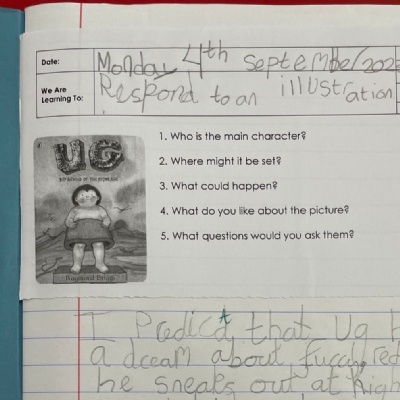 Date: Monday 4th September 202
We Are Learning To: Respond to an illustration
1. Who is the main character?
2. Where might it be set?
3. What could happen?
4. What do you like about the picture?
5. What questions would you ask them?
UG
Raymond Briggs
I Predict that Ug h
a dream about
he sneaks out at nigh